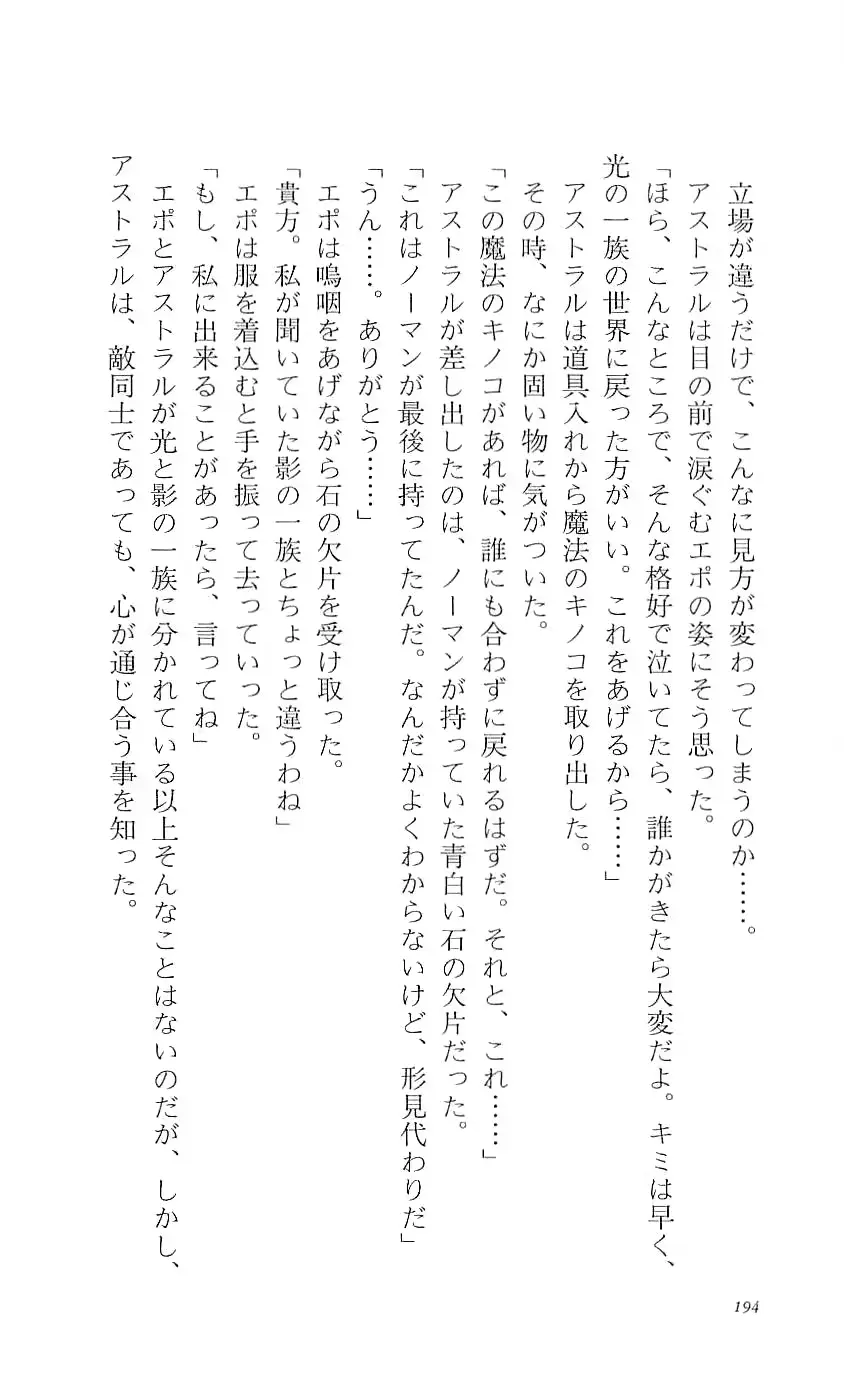 立場が違うだけで、こんなに見方が変わってしまうのか……。
アストラルは目の前で涙ぐむエポの姿にそう思った。
「ほら、こんなところで、そんな格好で泣いてたら、誰かがきたら大変だよ。キミは早く、
光の一族の世界に戻った方がいい。これをあげるから……」
アストラルは道具入れから魔法のキノコを取り出した。
その時、なにか固い物に気がついた。
「この魔法のキノコがあれば、誰にも合わずに戻れるはずだ。それと、これ……」
アストラルが差し出したのは、ノーマンが持っていた青白い石の欠片だった。
「これはノーマンが最後に持ってたんだ。なんだかよくわからないけど、形見代わりだ」
「うん……。ありがとう……」
エポは嗚咽をあげながら石の欠片を受け取った。
「貴方。私が聞いていた影の一族とちょっと違うわね」
エポは服を着込むと手を振って去っていった。
「もし、私に出来ることがあったら、言ってね」
エポとアストラルが光と影の一族に分かれている以上そんなことはないのだが、しかし、
アストラルは、敵同士であっても、心が通じ合う事を知った。
194